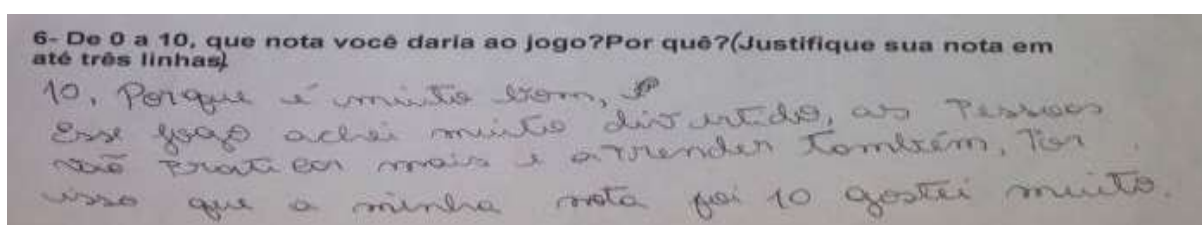 6- De 0 a 10, que nota você daria ao jogo?Por quê?(Justifique sua nota em
até três linhas)
10, Porque é muito bom,
Esse jogo achei muito divertido, as Pessoas
vão Praticar mais e aprender também, Por
isso que a minha nota foi 10 gostei muito.